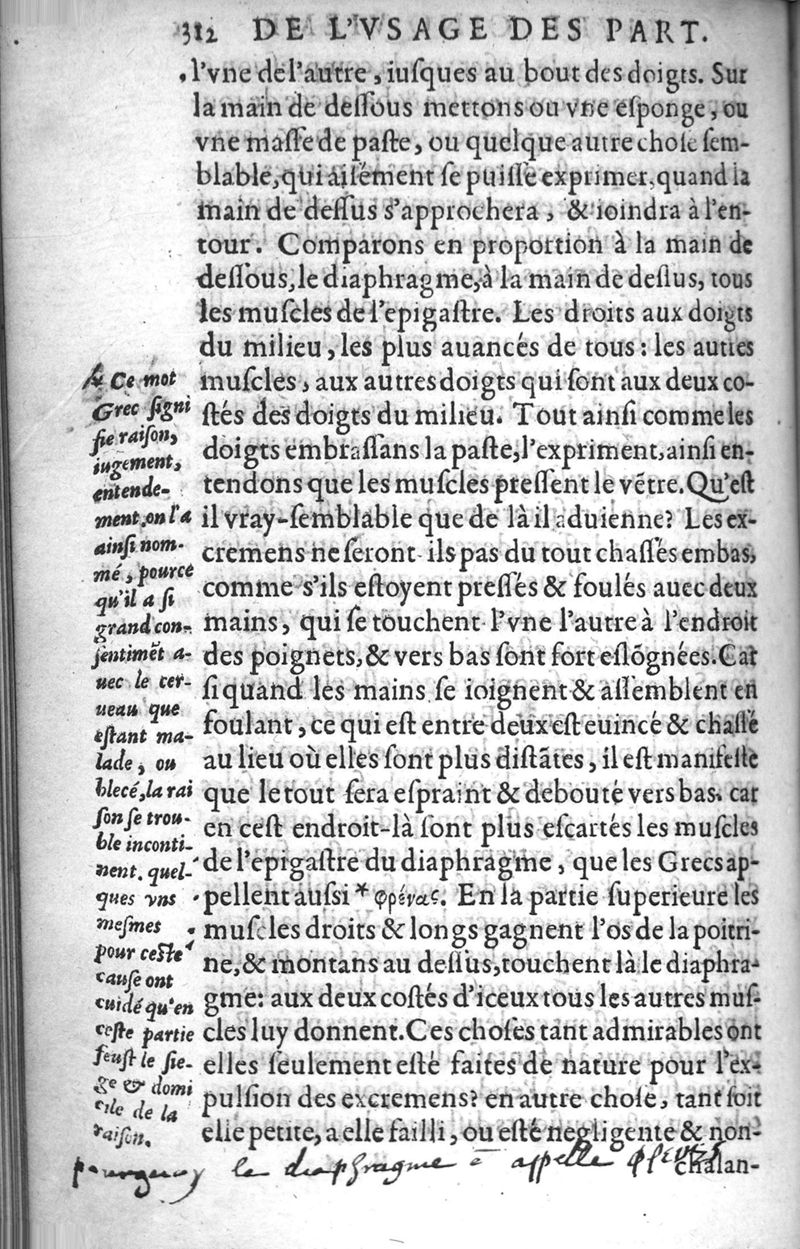 312 DE L'VSAGE DES PART.
l'vne de l'autre, iuſques au bout des doigts. Sur
la main de deſſous mettons ou vne eſponge, ou
vne maſſe de paſte, ou quelque autre choſe ſem-
blable, qui aiſément ſe puiſſe exprimer, quand la
main de deſſus s'approchera, & ioindra à l'en-
tour. Comparons en proportion à la main de
deſſous, le diaphragme, à la main de deſſus, tous
les muſcles de l'epigaſtre. Les droits aux doigts
du milieu, les plus auancés de tous: les autres
muſcles, aux autres doigts qui ſont aux deux co-
ſtés des doigts du milieu. Tout ainſi comme les
doigts embraſſans la paſte, l'expriment, ainſi en-
tendons que les muſcles preſſent le vẽtre. Qu'eſt
il vray-ſemblable que de là il aduienne? Les ex-
cremens ne ſeront-ils pas du tout chaſſés embas,
comme s'ils eſtoyent preſſés & foulés auec deux
mains, qui ſe touchent l'vne l'autre à l'endroit
des poignets, & vers bas ſont fort eſlõgnées. Car
ſi quand les mains ſe ioignent & aſſemblent en
foulant, ce qui eſt entre deux eſt euincé & chaſſé
au lieu où elles ſont plus diſtãtes, il eſt manifeſte
que le tout ſera eſpraint & debouté vers bas: car
en ceſt endroit-là ſont plus eſcartés les muſcles
de l'epigaſtre du diaphragme, que les Grecs ap-
pellent auſſi * φρένας. En la partie ſuperieure les
muſcles droits & longs gagnent l'os de la poitri-
ne, & montans au deſſus, touchent là le diaphra-
gme: aux deux coſtés d'iceux tous les autres muſ-
cles luy donnent. Ces choſes tant admirables ont
elles ſeulement eſté faites de nature pour l'ex-
pulſion des excremens? en autre choſe, tant ſoit
elle petite, a elle failli, ou eſté negligente & non-
chalan-
* Ce mot
Grec ſigni
fie raiſon,
iugement,
entende-
ment, on l'a
ainſi nom-
mé, pource
qu'il a ſi
grand con-
ſentimẽt a-
uec le cer-
ueau que
eſtant ma-
lade, ou
blecé, la rai
ſon ſe trou-
ble inconti-
nent. quel-
ques vns
meſmes
pour ceſte
cauſe ont
cuidé qu'en
ceſte partie
feuſt le ſie-
ge & domi
cile de la
raiſon.
pourquoy le diaphragme e appelle